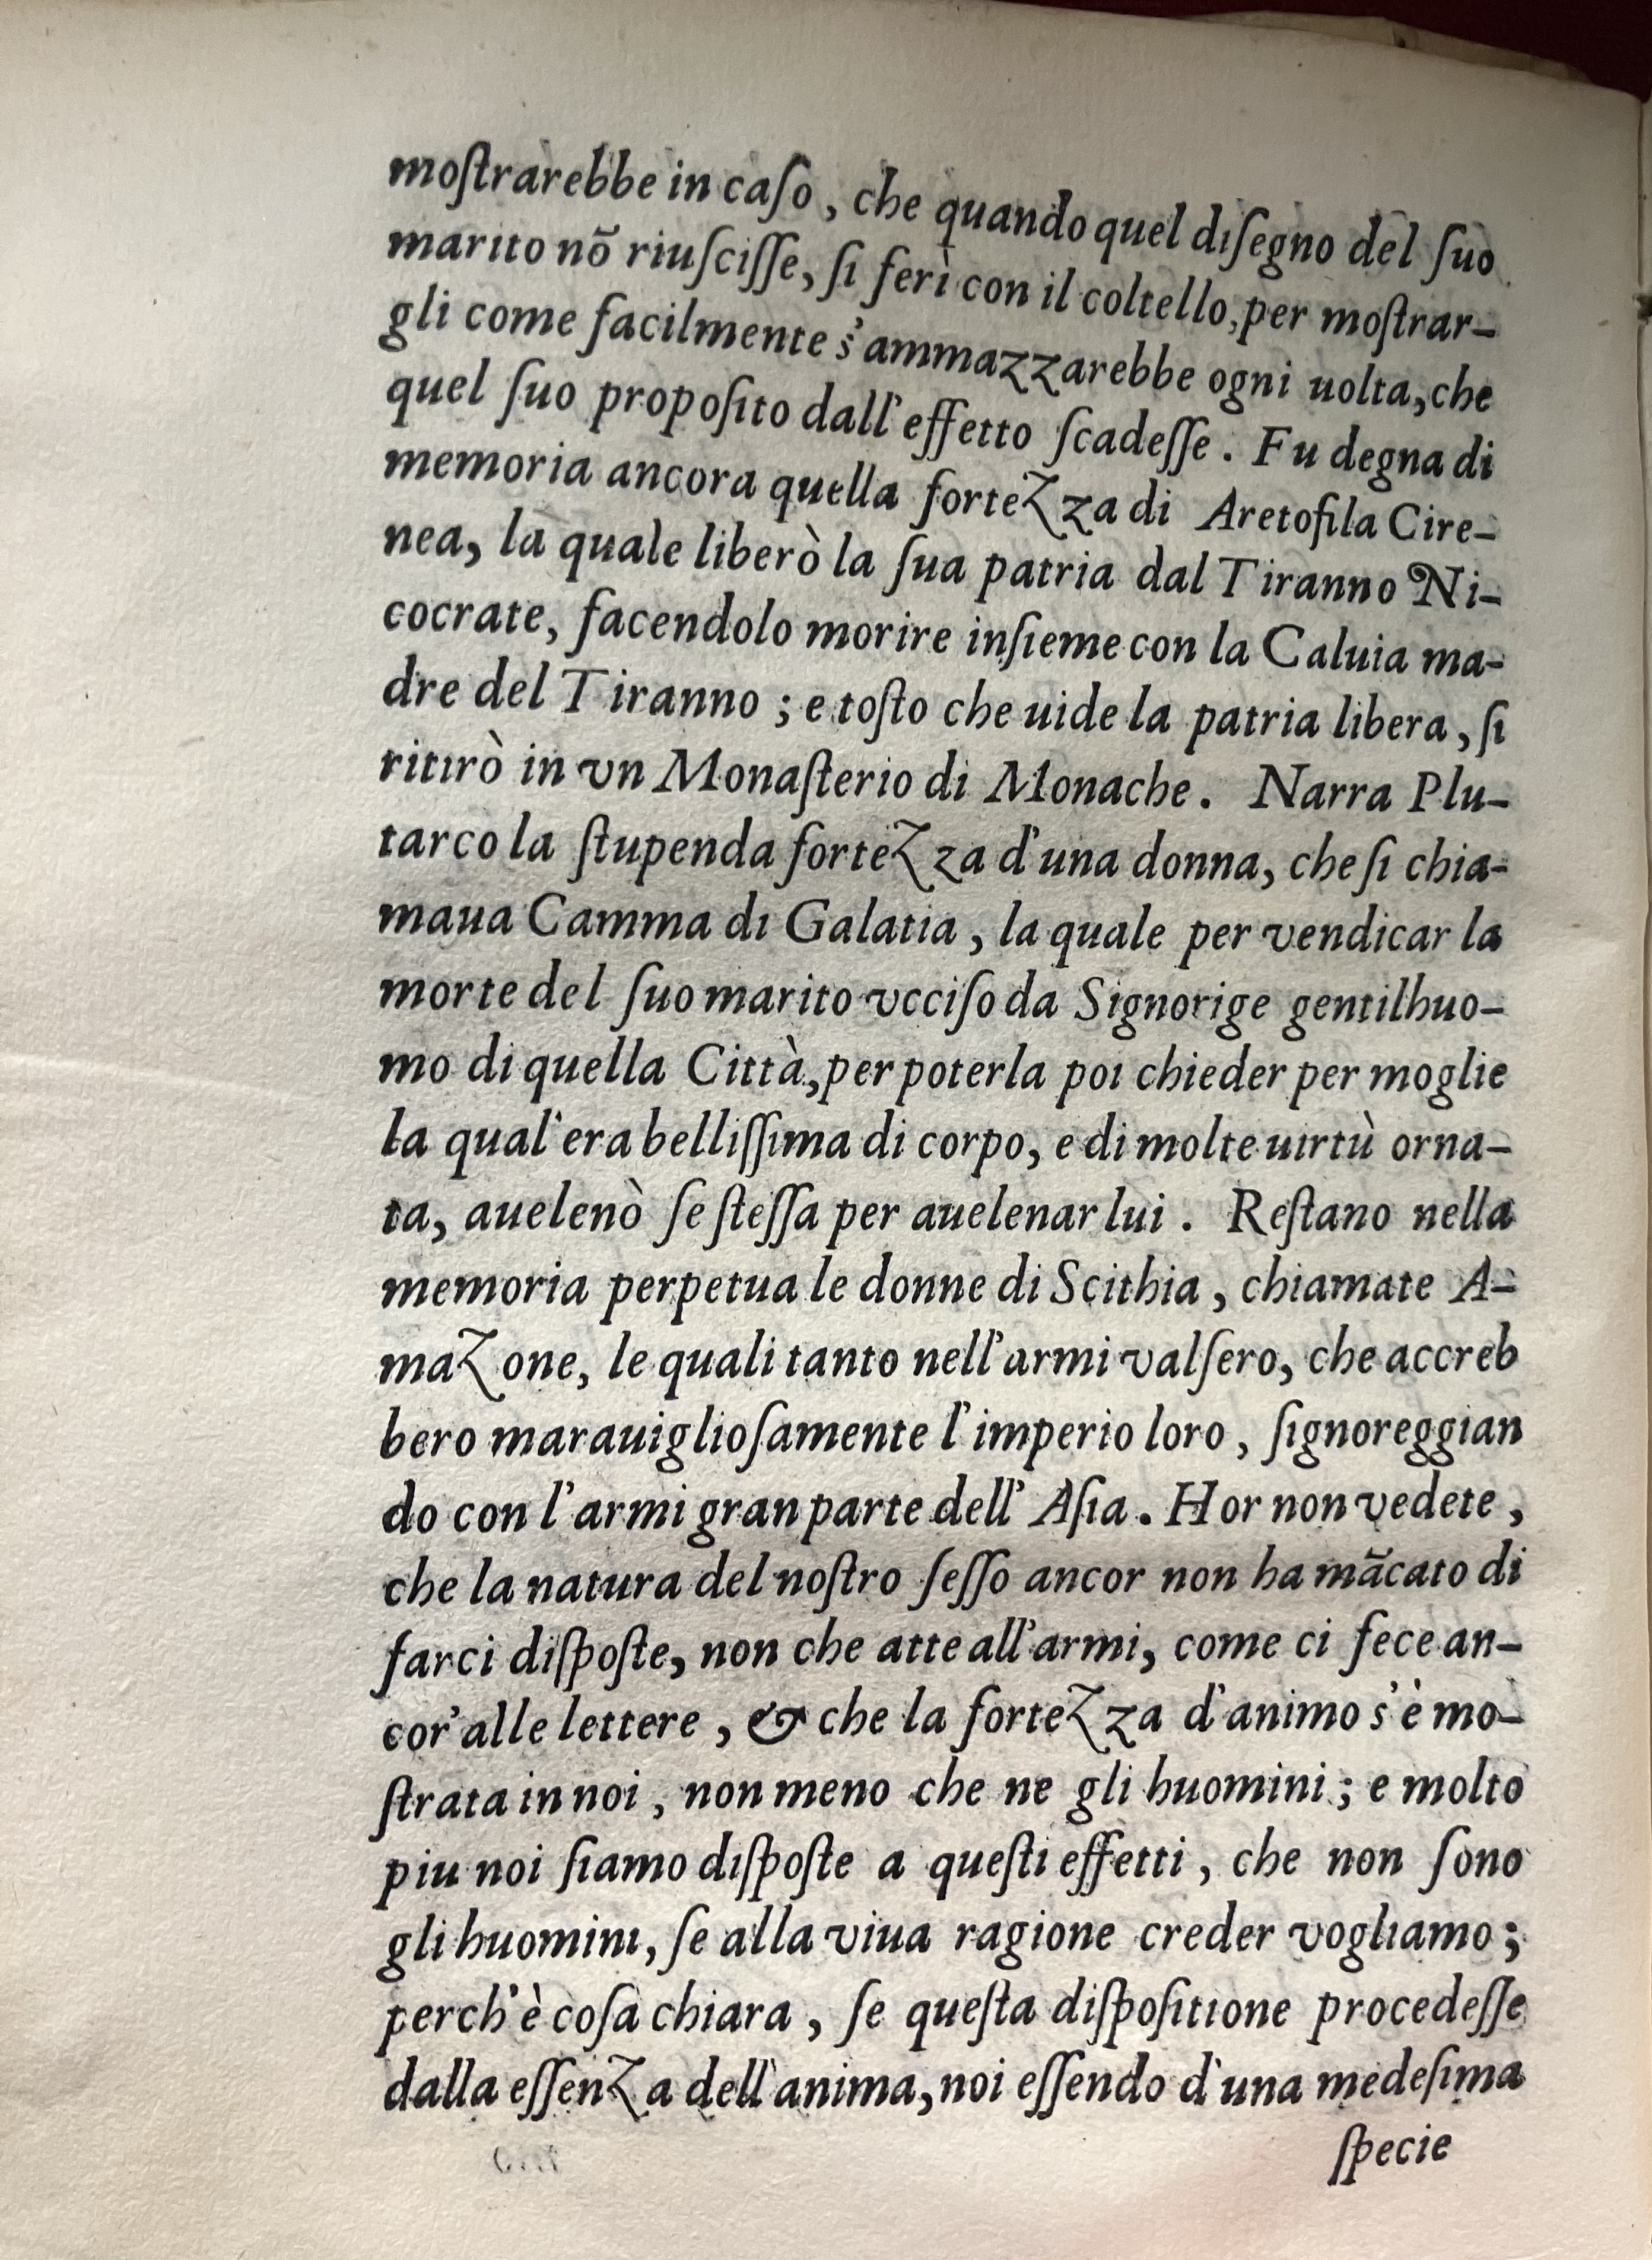 moſtrarebbe in caſo, che quando quel diſegno del ſuo
marito nō riuſciſſe, ſi ferì con il coltello, per moſtrar-
gli come facilmente s'ammazzarebbe ogni uolta, che
quel ſuo propoſito dall'effetto ſcadeſſe. Fu degna di
memoria ancora quella fortezza di Aretofila Cire-
nea, la quale liberò la ſua patria dal Tiranno Ni-
cocrate, facendolo morire inſieme con la Caluia ma-
dre del Tiranno; e toſto che uide la patria libera, ſi
ritirò in vn Monaſterio di Monache. Narra Plu-
tarco la ſtupenda fortezza d'una donna, che ſi chia-
maua Camma di Galatia, la quale per vendicar la
morte del ſuo marito vcciſo da Signorige gentilhuo-
mo di quella Città, per poterla poi chieder per moglie
la qual'era belliſſima di corpo, e di molte uirtù orna-
ta, auelenò ſe ſteſſa per auelenar lui. Reſtano nella
memoria perpetua le donne di Scithia, chiamate A-
mazone, le quali tanto nell'armi valſero, che accreb
bero marauiglioſamente l'imperio loro, ſignoreggian
do con l'armi gran parte dell'Aſia. Hor non vedete,
che la natura del noſtro ſeſſo ancor non ha mãcato di
farci diſpoſte, non che atte all'armi, come ci fece an-
cor'alle lettere, & che la fortezza d'animo s'è mo-
ſtrata in noi, non meno che ne gli huomini; e molto
piu noi ſiamo diſpoſte a queſti effetti, che non ſono
gli huomini, ſe alla viua ragione creder vogliamo;
perch'è coſa chiara, ſe queſta diſpoſitione procedeſſe
dalla eſſenza dell'anima, noi eſſendo d'una medeſima
ſpecie